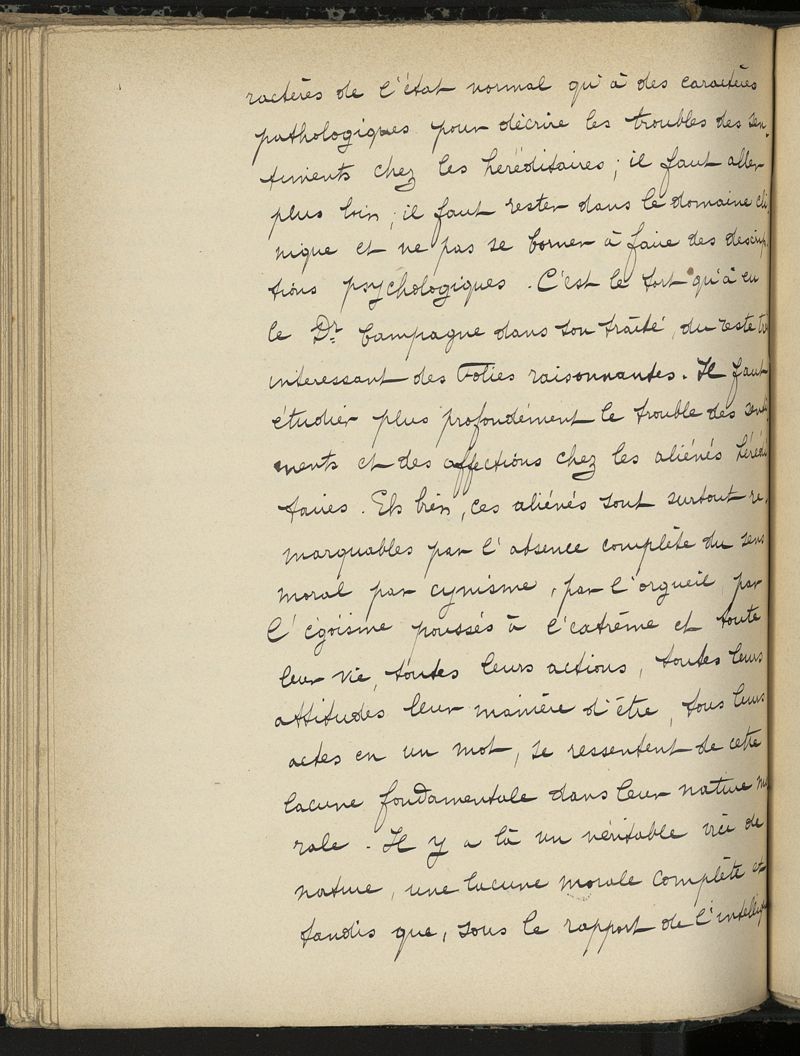 ractères de l'état normal qu'à des caractères
pathologiques pour décrire les troubles des sen-
timents chez les héréditaires; il faut aller
plus loin; il faut rester dans le domaine cli
nique et ne pas se borner à faire des descrip
tions psychologiques. C'est le tort qu'à eu
le Dr Campagne dans son traité, du reste
interessant des Folies raisonnantes. Il faut
étudier plus profondément le trouble des senti
ments et des affections chez les aliénés hérédi
taires. Eh bien, ces aliénés sont surtout re-
marquables par l'absence complète du sens
moral par cynisme, par l'orgueil, par
l'égoïsme poussés à l'extrême et toute
leur vie, toutes leurs actions, toutes leurs
attitudes leur manière d'être, tous leurs
actes en un mot, se ressentent de cette
lacune fondamentale dans leur nature mo
rale. Il y a là un véritable vice de
nature, une lacune morale complète et
tandis que, sous le rapport de l'intellig